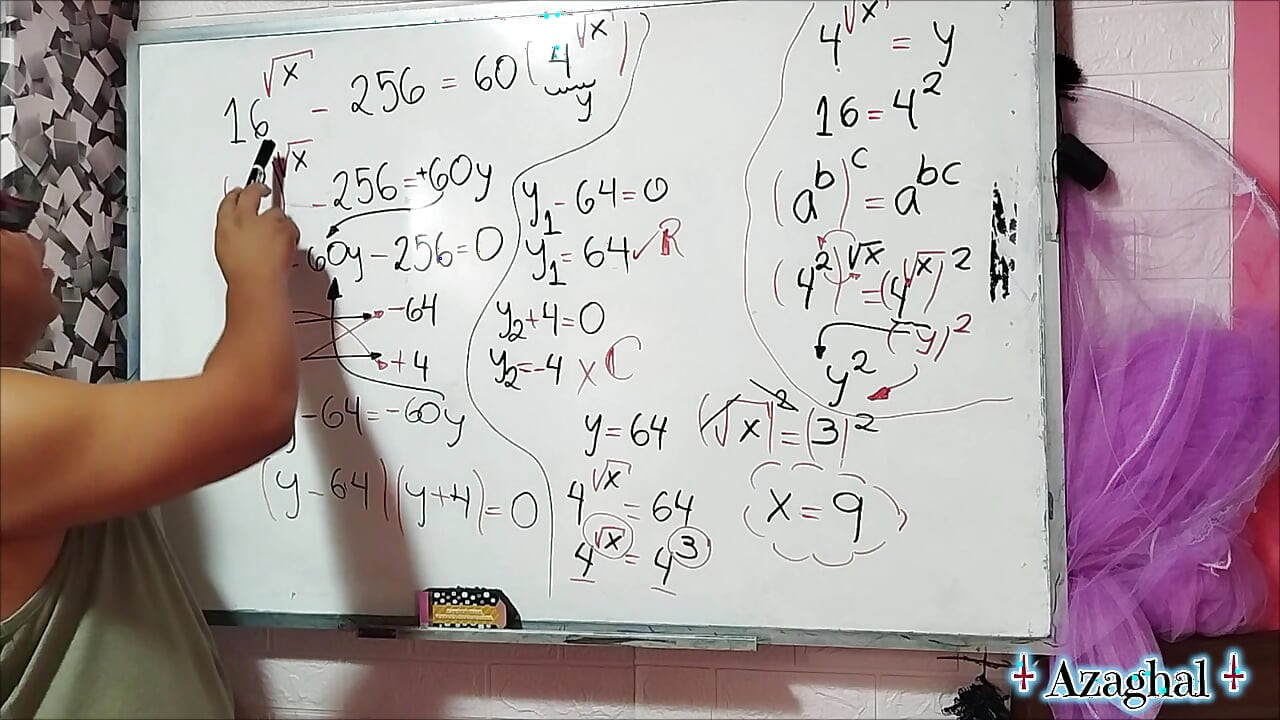 16^√x - 256 = 60(4^√x)
y
√x - 256 = +60y
60y - 256 = 0
-64
+4
y - 64 = -60y
(y - 64)(y + 4) = 0
y₁ - 64 = 0
y₁ = 64 ✓ R
y₂ + 4 = 0
y₂ = -4 x C
y = 64
4^√x = 64
4^√x = 4^3
(√x)^2 = (3)^2
x = 9
4^√x = y
16 = 4^2
(a^b)^c = a^bc
(4^2)^√x = (4^√x)^2
(y)^2
y^2
Azaghal